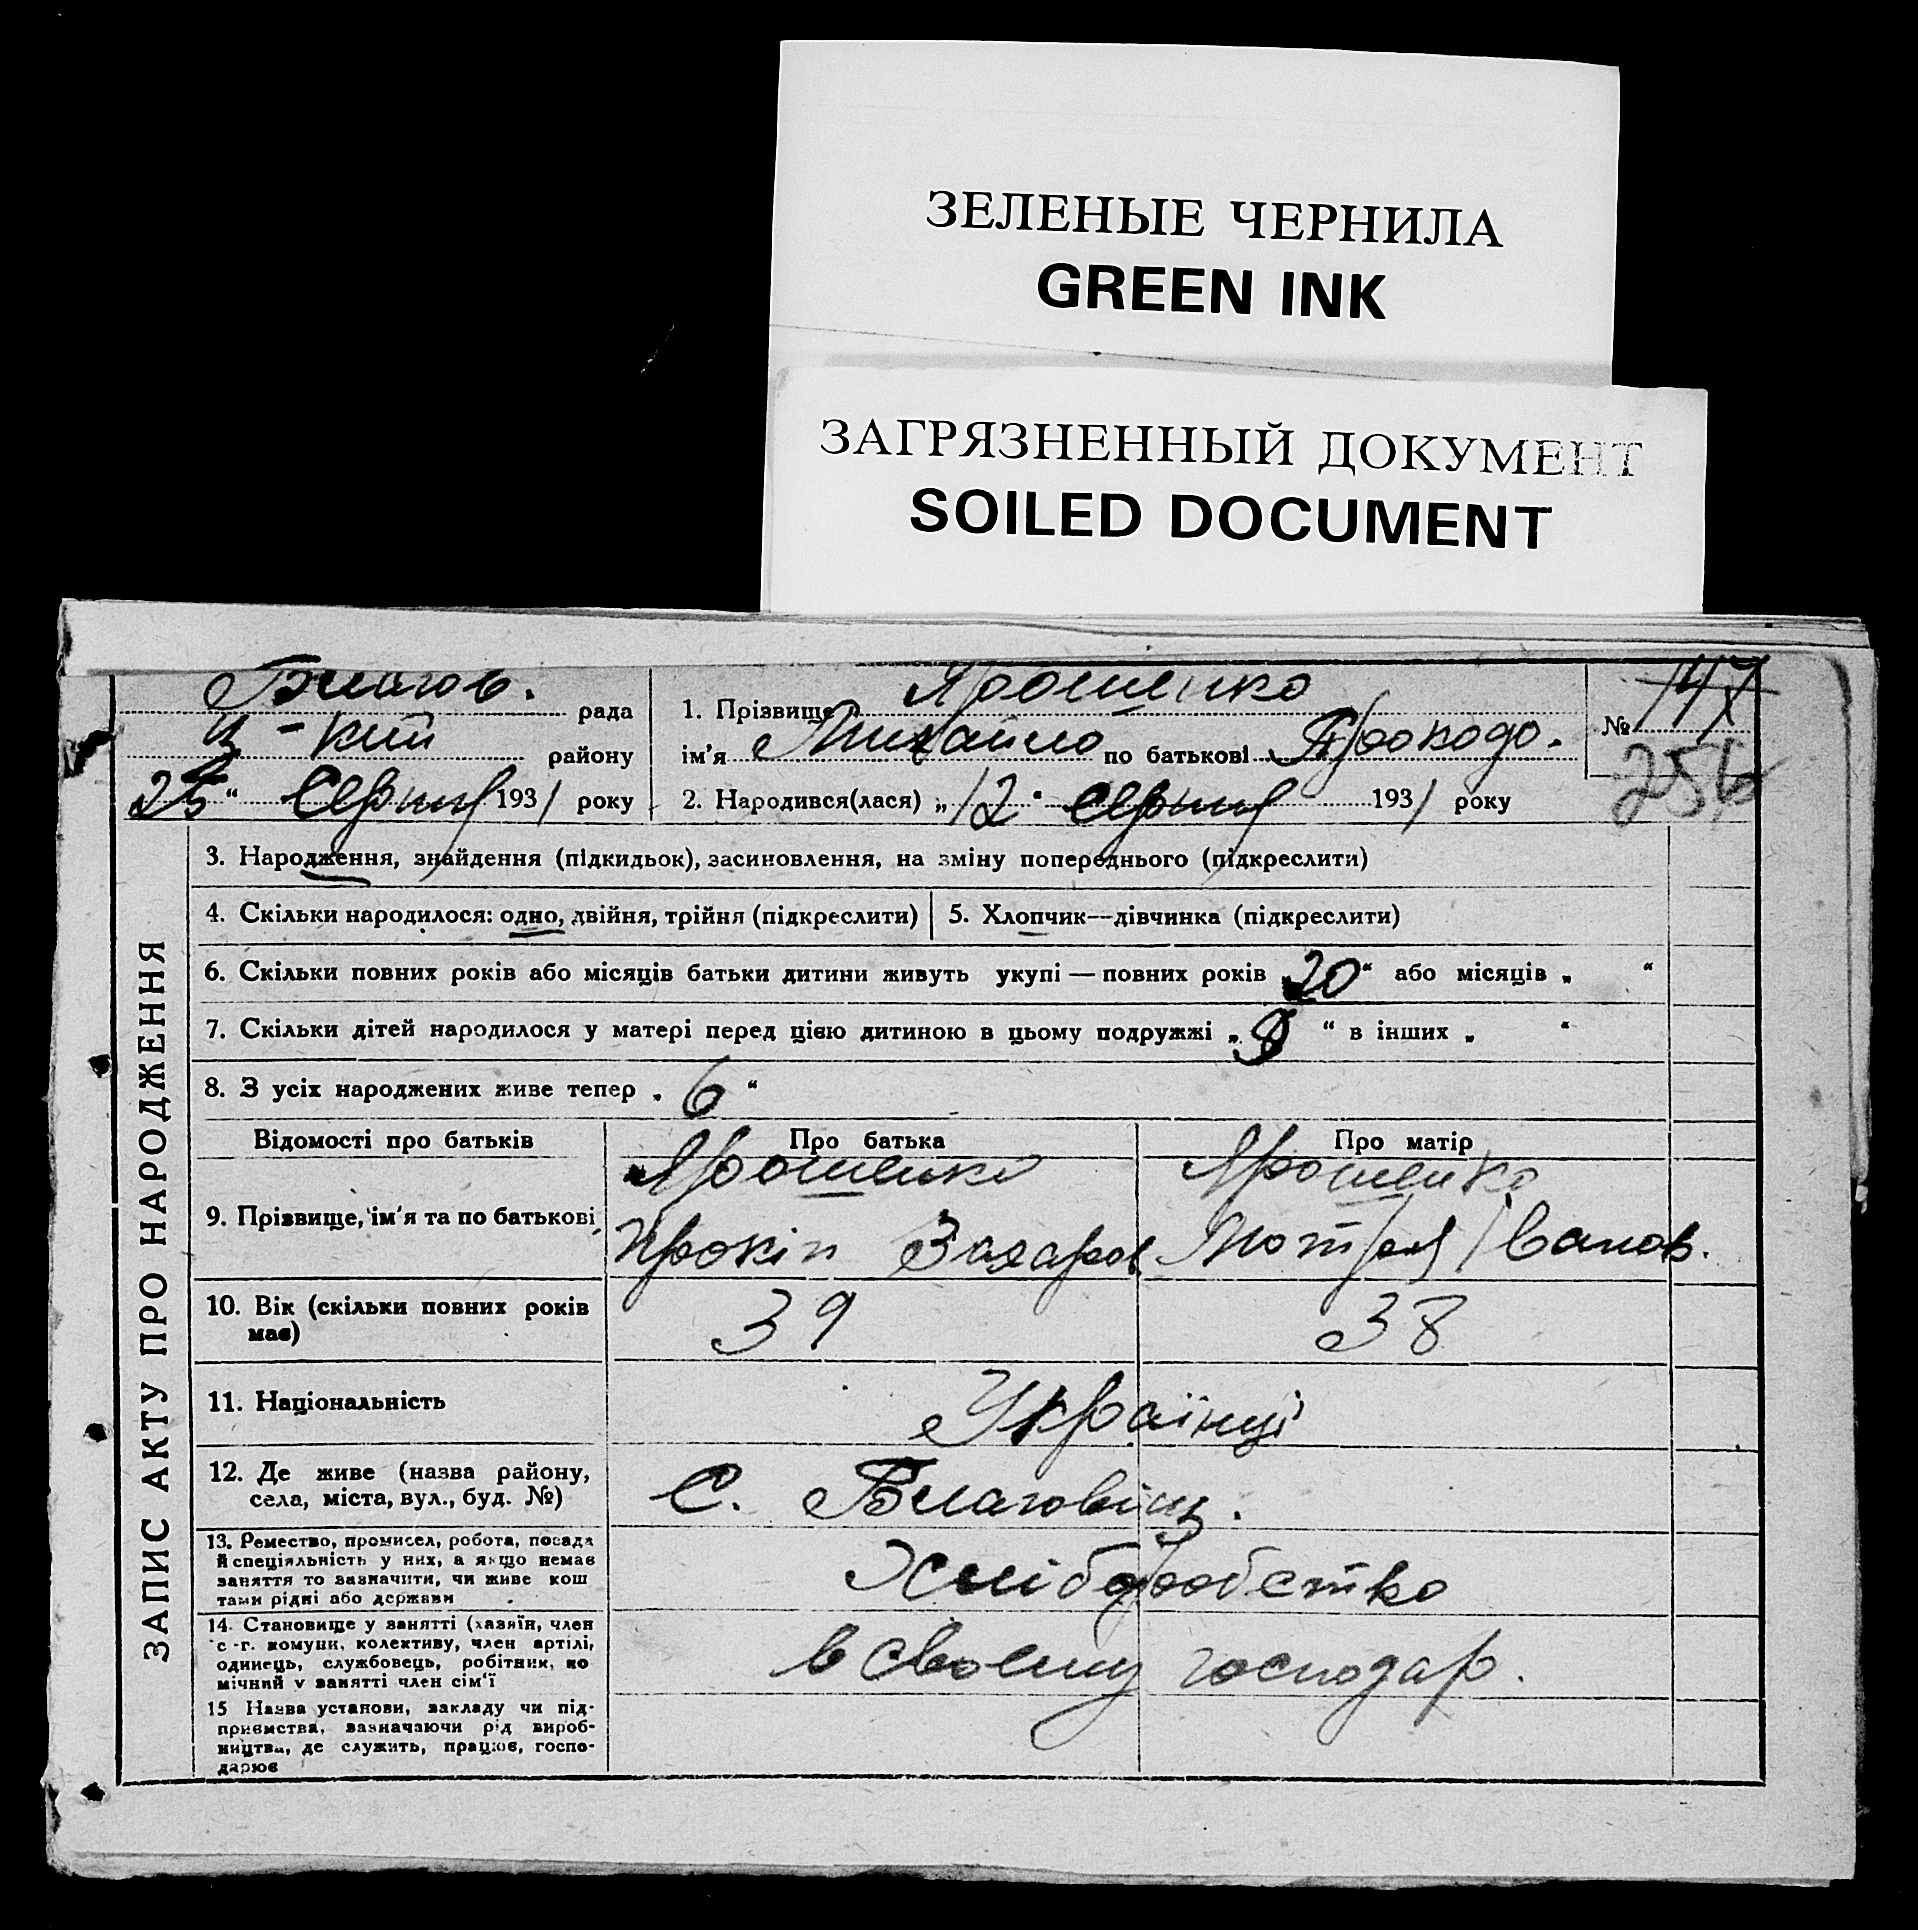 ЗЕЛЕНЫЕ ЧЕРНИЛА
GREEN INK
ЗАГРЯЗНЕННЫЙ ДОКУМЕНТ
SOILED DOCUMENT
Благов. рада
кий району
25 “ Серпня 1931 року
1. Прізвище Ярошенко
ім'я Михайло по батькові Прокодо.
2. Народився(лася) „12“ Серпня 1931 року
№ 147
256
ЗАПИС АКТУ ПРО НАРОДЖЕННЯ
3. Народження, знайдення (підкидьок), засиновлення, на зміну попереднього (підкреслити)
4. Скільки народилося: одно, двійня, трійня (підкреслити) 5. Хлопчик—дівчинка (підкреслити)
6. Скільки повних років або місяців батьки дитини живуть укупі — повних років „20“ або місяців „ “
7. Скільки дітей народилося у матері перед цією дитиною в цьому подружжі „ “ в інших „ “
8. З усіх народжених живе тепер „6“
Відомості про батьків Про батька Про матір
9. Прізвище, ім'я та по батькові
Ярошенко
Прокіп Захаров.
Ярошенко
Мотря Іванов.
10. Вік (скільки повних років
має)
39 38
11. Національність Українці
12. Де живе (назва району,
села, міста, вул., буд. №)
С. Благовіщ.
13. Ремество, промисел, робота, посада
й спеціяльність у них, а якщо немає
заняття то зазначити, чи живе кош
тами рідні або держави
Хліборобство
14. Становище у занятті (хазяїн, член
с-г. комуни, колективу, член артілі,
одинець, службовець, робітник, по
мічний у занятті член сім'ї
в своєму господар.
15 Назва установи, закладу чи під-
приємства, зазначаючи рід вироб-
ництва, де служить, працює, госпо-
дарює